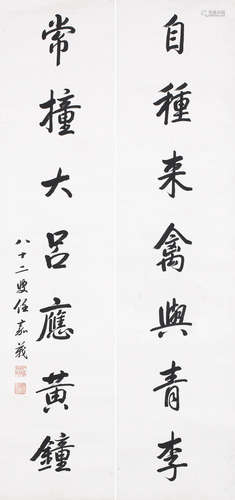 自種来禽與青李
常撞大呂應黃鐘
八十二叟任嘉義